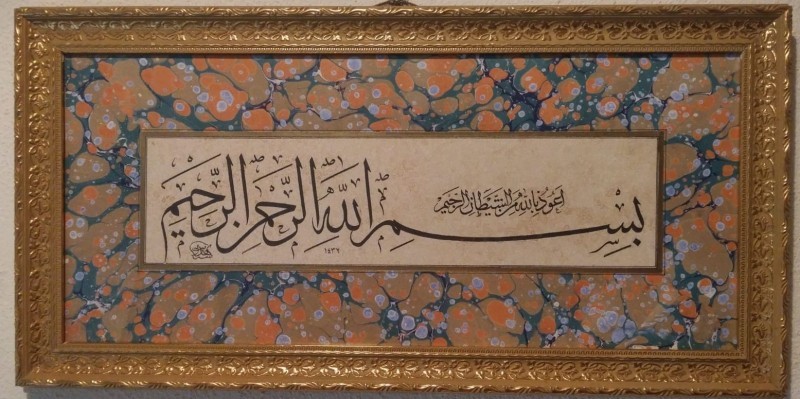 أعوذ بالله من الشيطان الرجيم
بِسْمِ اللهِ الرَّحْمٰنِ الرَّحِيْمِ
١٤٣٧